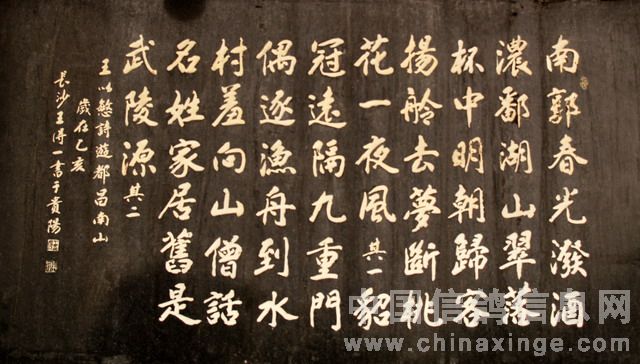 南郭春光潑酒
濃鄱湖山翠落
杯中明朝歸客
揚舲去夢斷桃
花一夜風其一貂
冠遠隔九重門
偶逐漁舟到水
村羞向山僧話
名姓家居舊是
武陵源其二
王以慜詩遊都昌南山
歲在乙亥
長沙王得一書于貴陽
中国信鸽信息网
www.chinaxinge.com